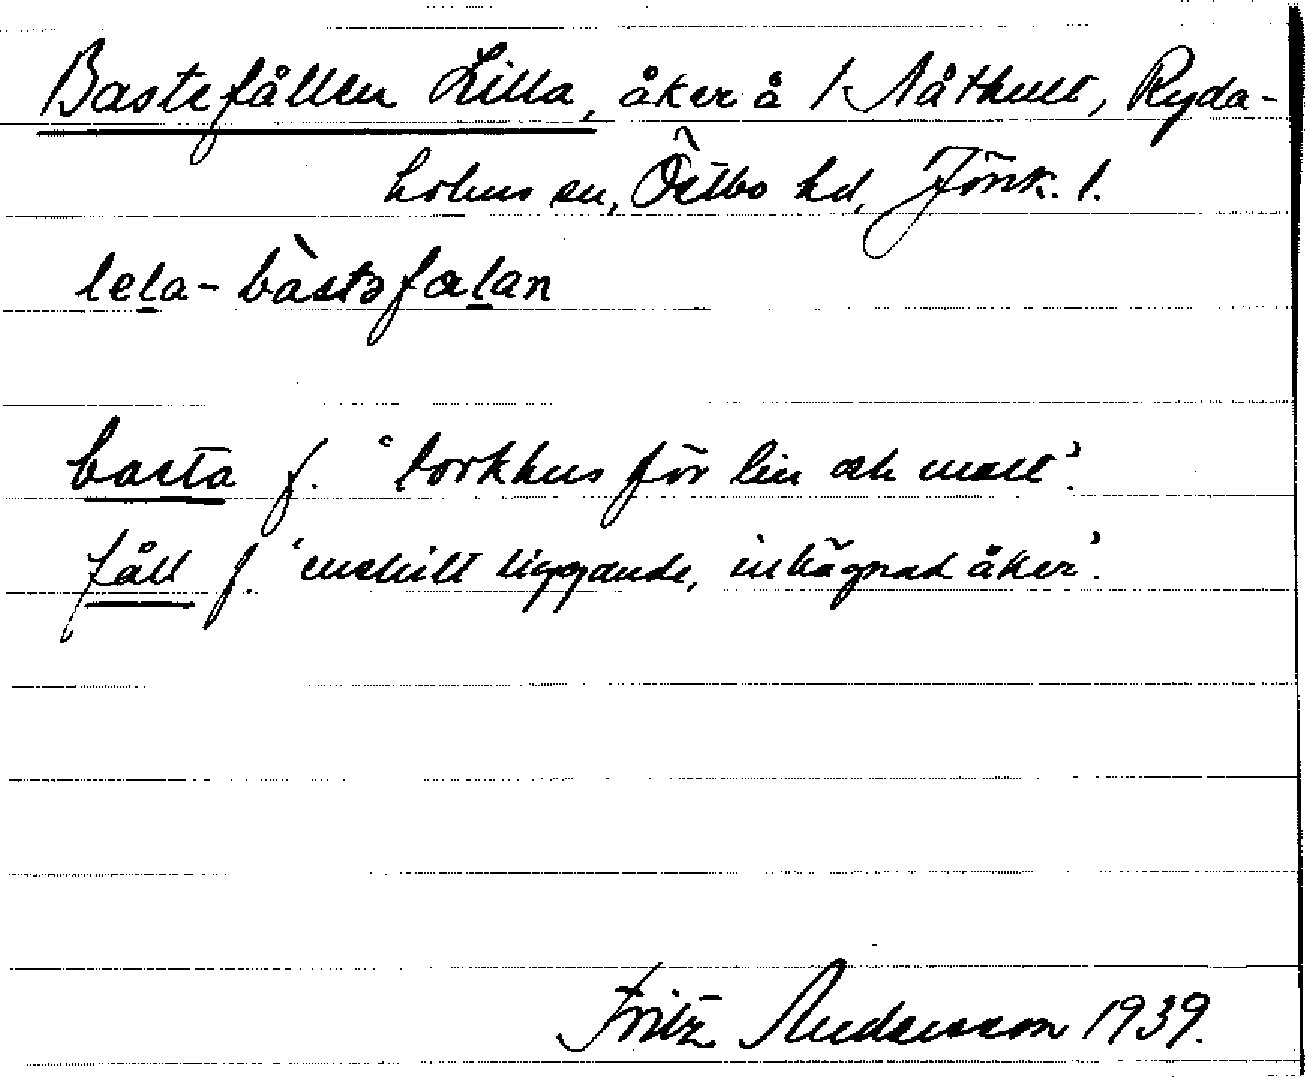 Bastefållen Lilla, åker å 1 Nåthult, Ryda-
holms sn, Östbo hd, Jönk. l.
lela-bàstəfɷlan
basta f. 'torkhus för lin och malt'.
fåll f. 'enskilt liggande, inhägnad åker'.
Fritz Andersson 1939.